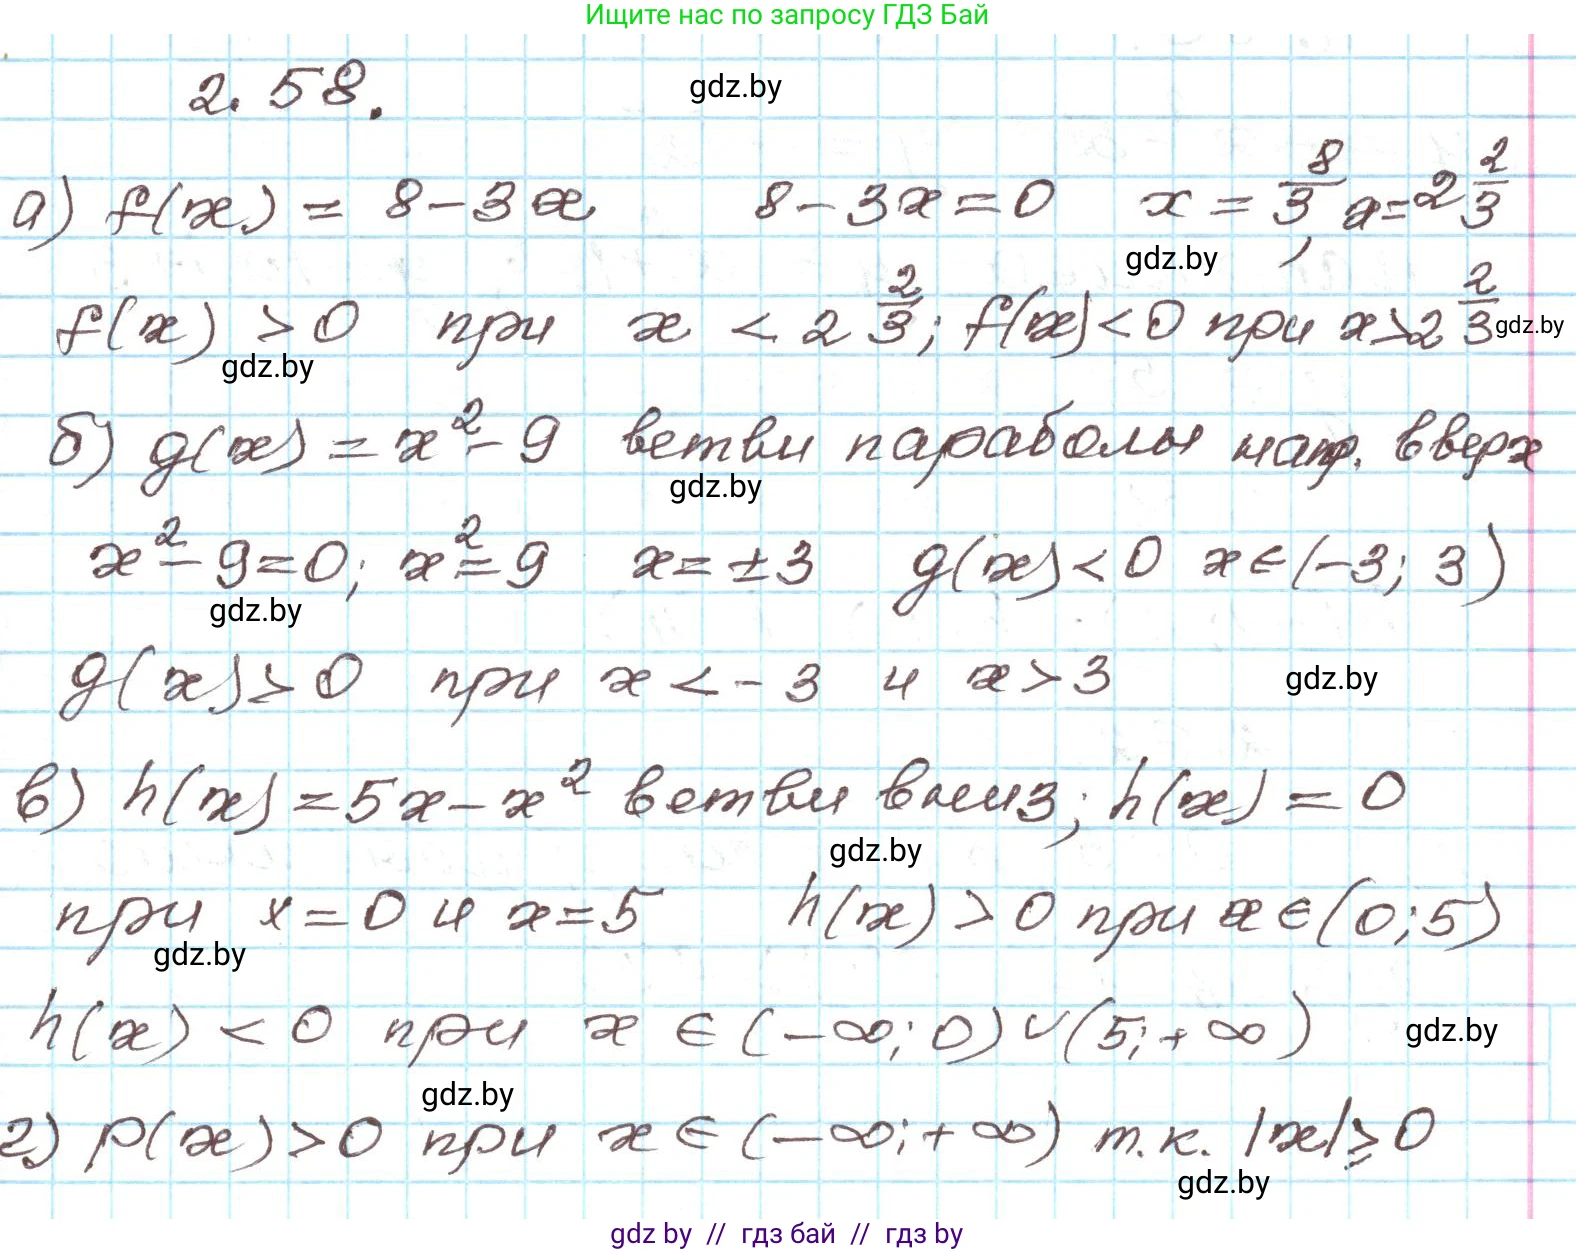 Ищите нас по запросу ГДЗ Бай
2.58.
gdz.by
а) f(x) = 8 - 3x 8 - 3x = 0 x = 8/3, x = 2 2/3
gdz.by
f(x) > 0 при x < 2 2/3; f(x) < 0 при x > 2 2/3
gdz.by
gdz.by
б) g(x) = x² - 9 ветви параболы напр. вверх
gdz.by
x² - 9 = 0; x² = 9 x = ±3 g(x) < 0 x ∈ (-3; 3)
gdz.by
g(x) > 0 при x < -3 и x > 3
gdz.by
в) h(x) = 5x - x² ветви вниз; h(x) = 0
gdz.by
при x = 0 и x = 5 h(x) > 0 при x ∈ (0; 5)
gdz.by
h(x) < 0 при x ∈ (-∞; 0) ∪ (5; +∞)
gdz.by
gdz.by
г) p(x) > 0 при x ∈ (-∞; +∞) т.к. |x| ≥ 0
gdz.by
gdz by // гдз бай // гдз by